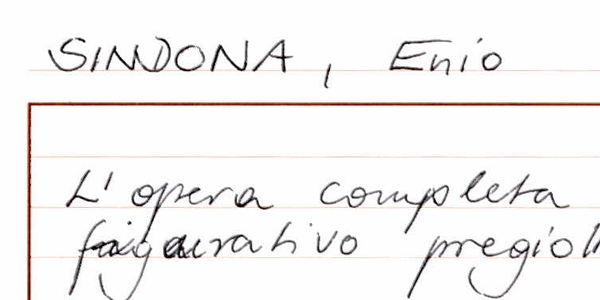 SINDONA, Enio
L'opera completa
figurativo